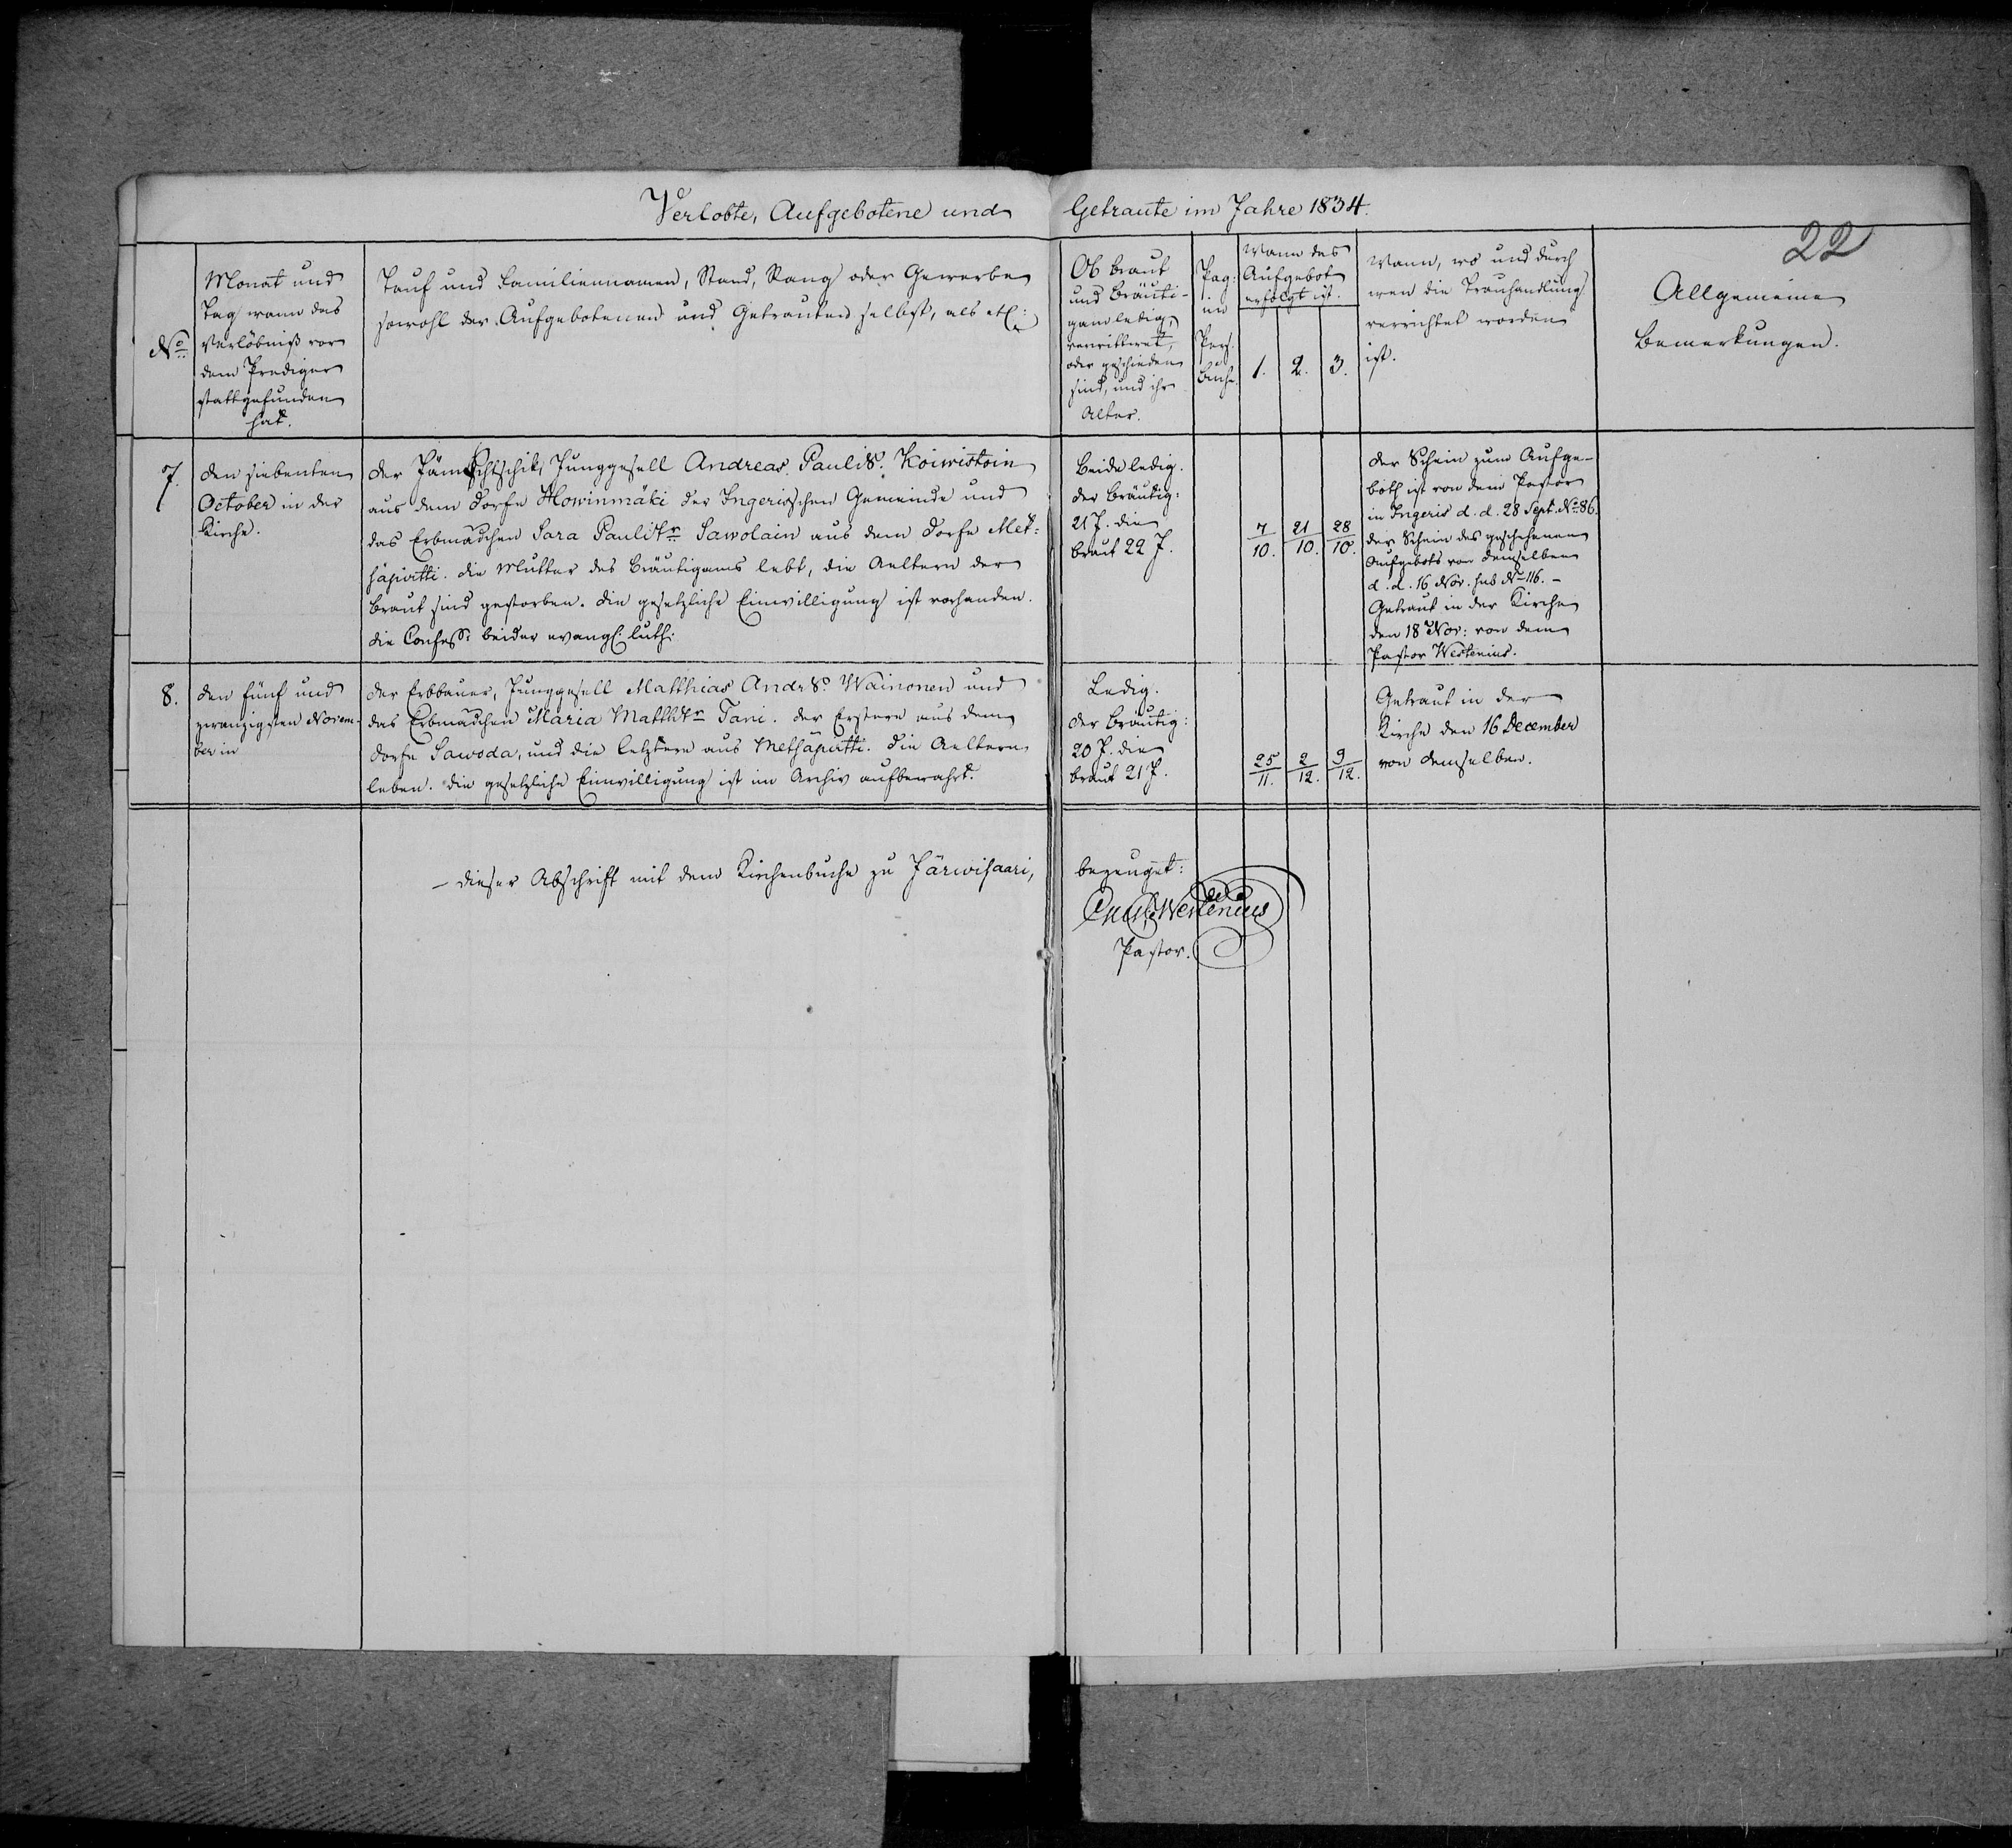 Verlobte, Aufgebotene und Getraute im Jahre 1834.
22
No
Monat und
Tag wann das
Verlöbniß vor
dem Prediger
stattgefunden
hat.
Tauf und Familiennamen, Stand, Rang oder Gewerbe
sowohl der Aufgebotenen und Getrauten selbst, als etc:
Ob Braut
und Bräuti-
gam ledig,
verwittwet,
oder geschieden
sind, und ihr
Alter.
Pag:
im
Pers.
Buche.
Wann das
Aufgebot
erfolgt ist.
1. 2. 3.
Wann, wo und durch
wen die Trauhandlung
verrichtet worden
ist.
Allgemeine
Bemerkungen.
7.
Den siebenten
October in der
Kirche.
Der Jämschtschik, Junggesell Andreas Pauli S. Koiwistoin
aus dem Dorfe Howinmäki der Ingerisschen Gemeinde und
das Erbmädchen Sara Pauli Tr Sawolain aus dem Dorfe Met-
säpirtti. Die Mutter des Bräutigams lebt, die Aeltern der
Braut sind gestorben. Die gesetzliche Einwilligung ist vorhanden.
Die Confess: beider evangl: luth:
Beide ledig.
Der Bräutig:
21 J. die
Braut 22 J.
7/10. 21/10. 28/10.
Der Schein zum Aufge-
both ist von dem Pastor
in Ingeris d. d. 28 Sept. No 86.
Der Schein des geschehenen
Aufgebots von demselben
d. d. 16 Nov. sub No 116. –
Getraut in der Kirche
den 18 Nov: von dem
Pastor Westenius.
8.
Den fünf und
zwanzigsten Novem-
ber in
Der Erbbauer, Junggesell Matthias Andr S. Wainonen und
das Erbmädchen Maria Matth Tr Tani. Der Erstere aus dem
Dorfe Sawoda, und die letztere aus Metsäpirtti. Die Aeltern
leben. Die gesetzliche Einwilligung ist im Archiv aufbewahrt.
Ledig.
Der Bräutig:
20 J. die
Braut 21 J.
25/11. 2/12. 9/12.
Getraut in der
Kirche den 16 December
von demselben.
– dieser Abschrift mit dem Kirchenbuche zu Järwisaari, bezeuget:
Westenius
Pastor.